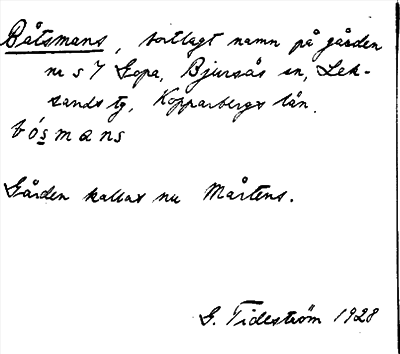 Båtsmans, bortlagt namn på gården
nr 57 Gopa, Bjursås sn, Lek-
sands tg, Kopparbergs län.
bósmans
Gården kallas nu Mårtens.
G. Tideström 1928